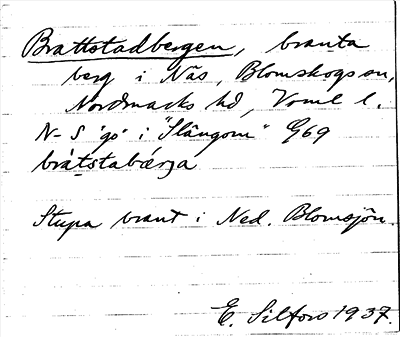 Brattstadbergen, branta
berg i Näs, Blomskogs sn,
Nordmarks hd, Vrml l.
N-S 'go' i "Slängom" G69
bràtstabǽrja
Stupa brant i Ned. Blomsjön.
E. Silfors 1937.